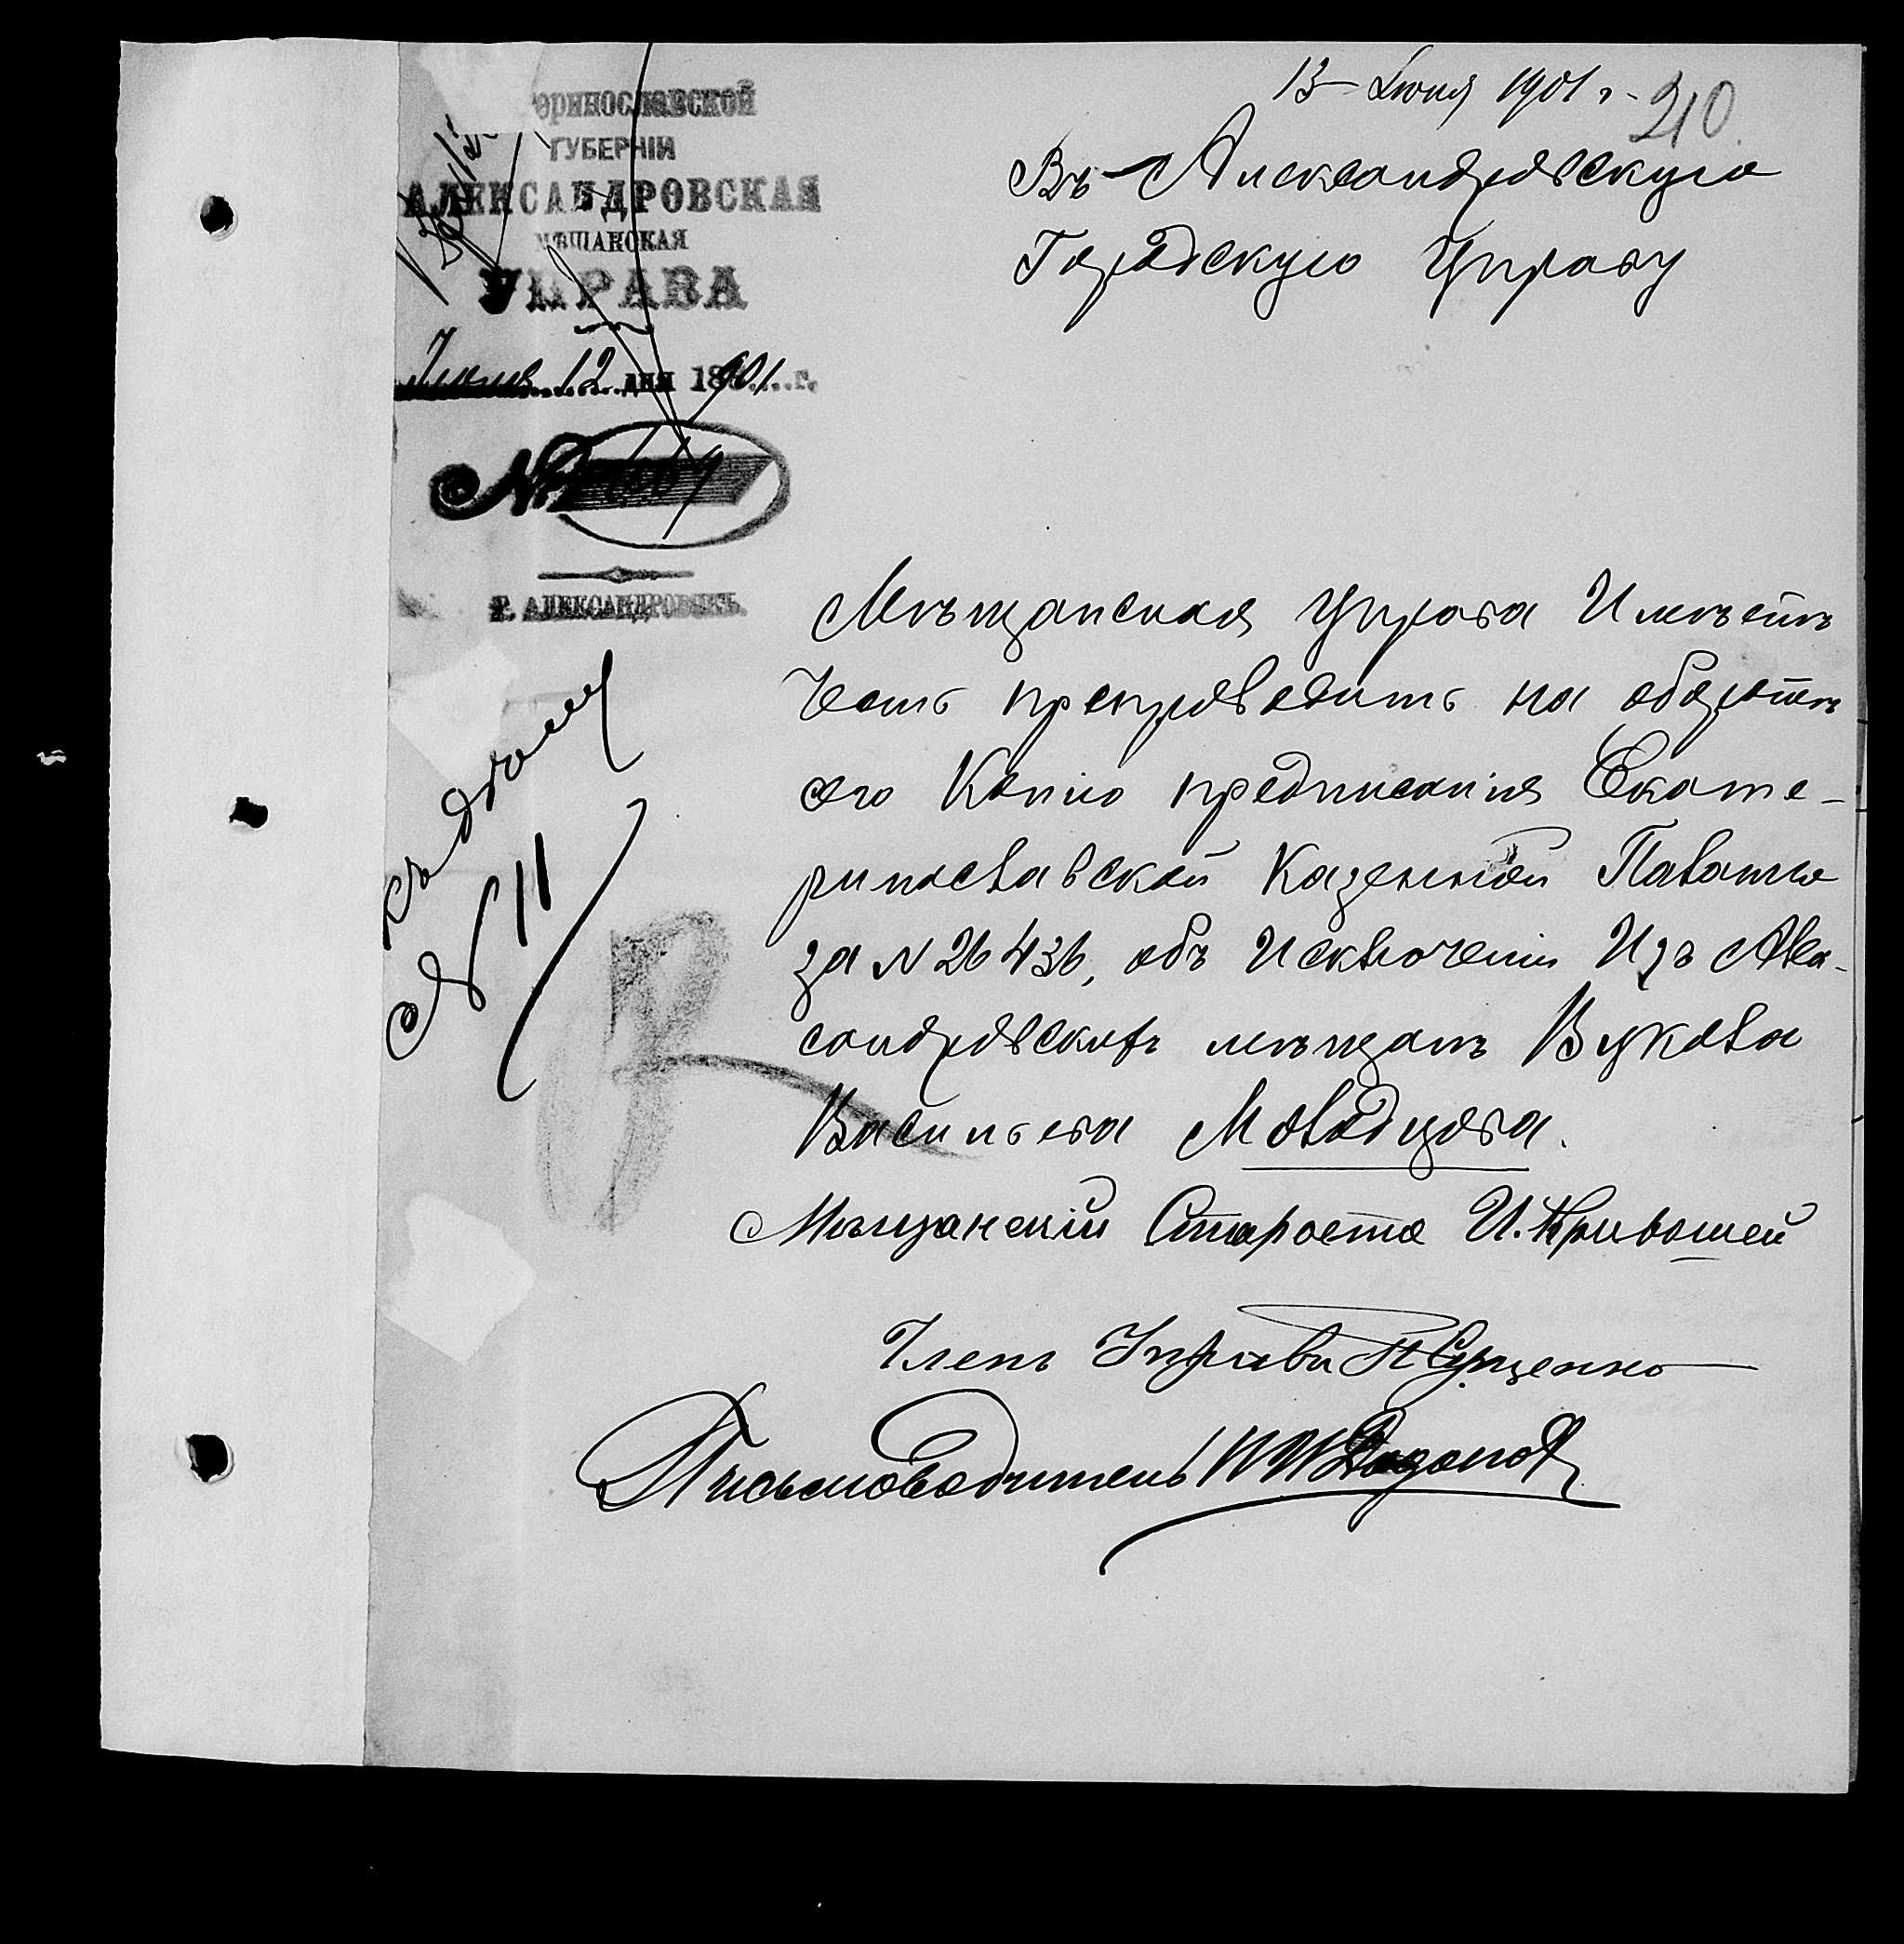 13 Июня 1901 г.
210
Въ Александровскую
Городскую Управу
еринославской
ГУБЕРНІИ
АЛЕКСАНДРОВСКАЯ
МѢЩАНСКАЯ
УПРАВА
Июня 12 дня 1901 г.
№
Г. АЛЕКСАНДРОВСКЪ.
Къ дѣлу
№ 11
Мѣщанская Управа Имѣетъ
Честь препроводить на оборотѣ
сего Копію предписанія Екате-
ринославской Казенной Палаты
за N 26436, объ Исключеніи Изъ Алек-
сандровскихъ мѣщанъ Вукола
Васильева Молодцова.
Мѣщанскій Староста И. Кривошей
Членъ Управы
Письмоводитель